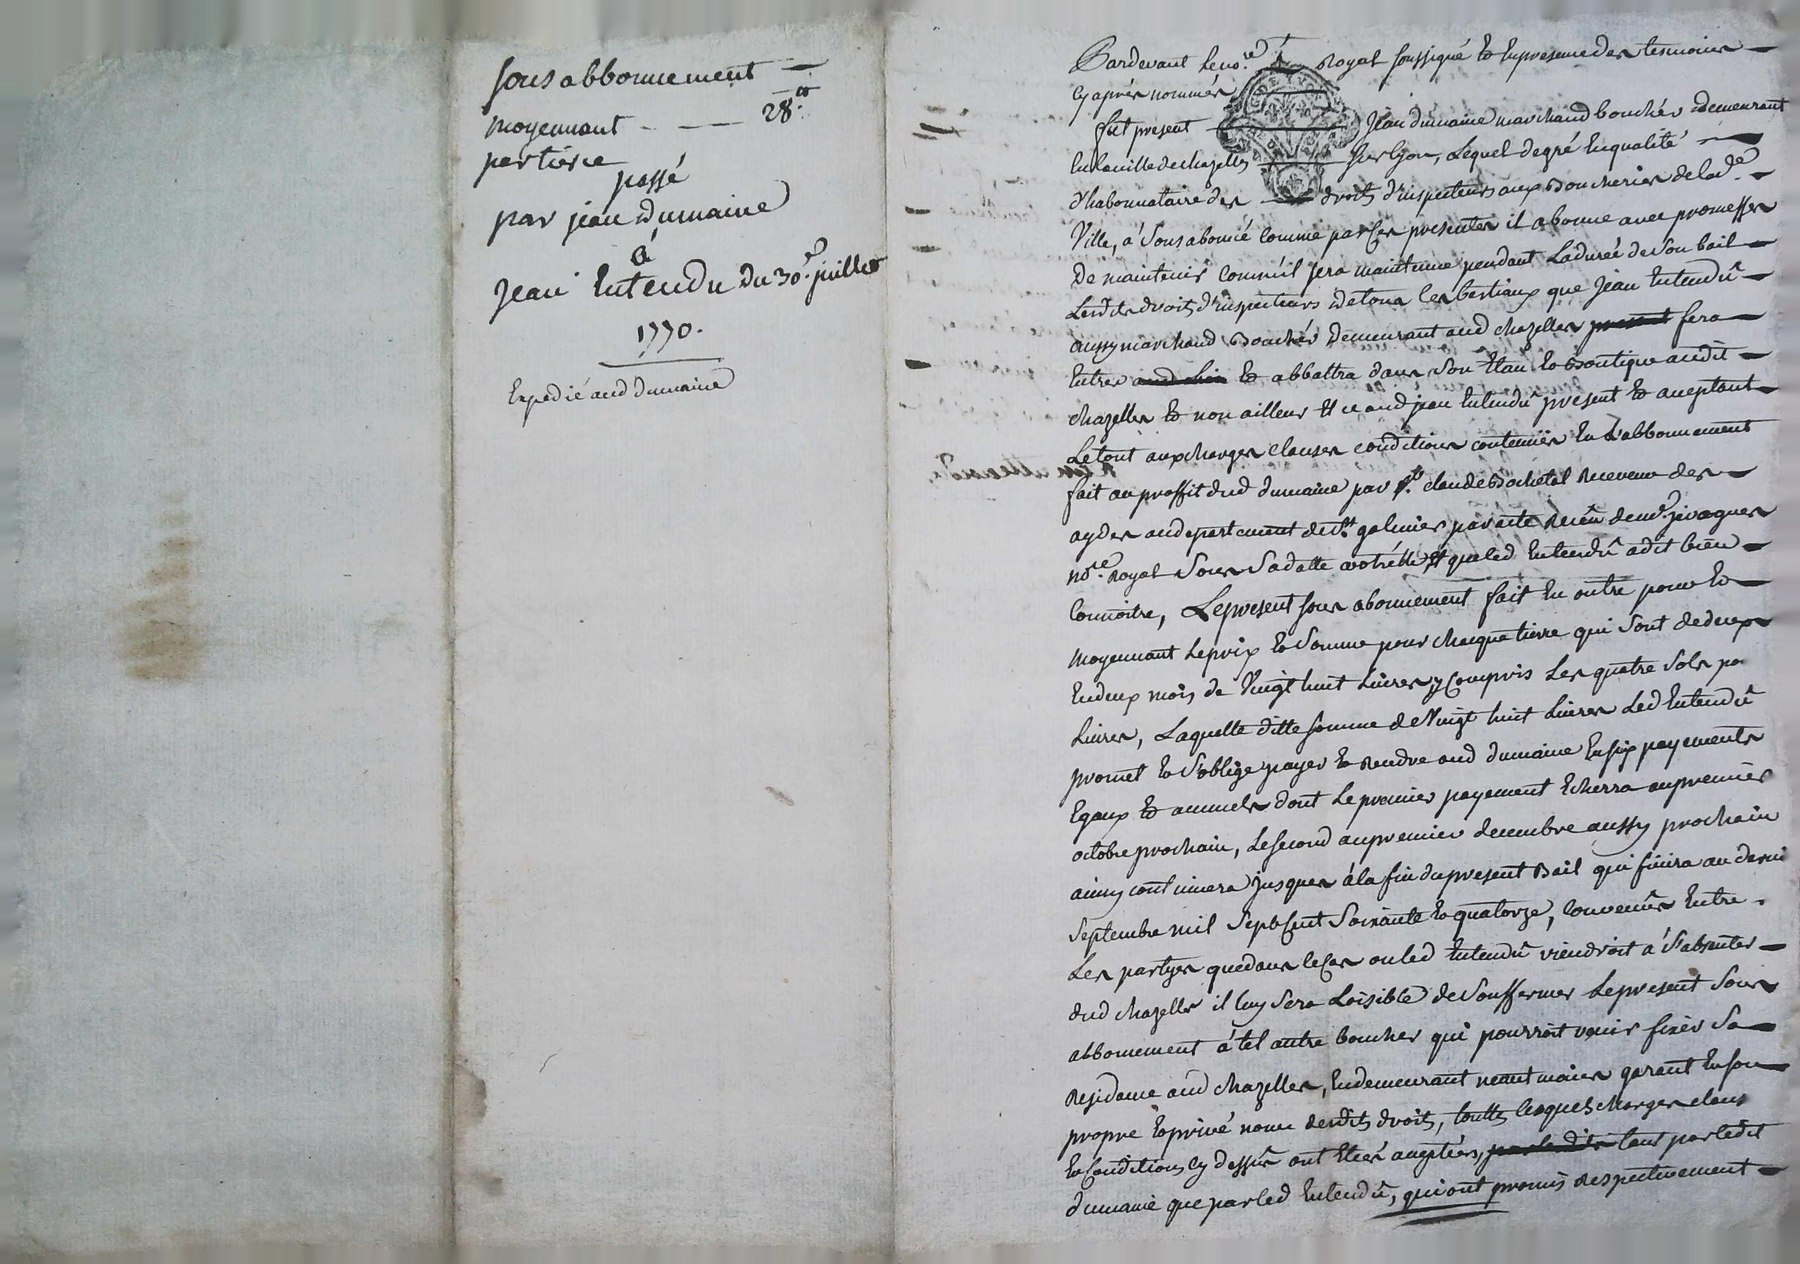 sous abbonnement
moyennant - - — 28tt
par tierce
passé
par jean dumaine
à
Jean Entendu du 30e juillet
1770.
Expedié aud dumaine
Pardevant le nore Royal soussigné et en presence des tesmoins
cy après nommés
fut present Jean dumaine marchand bouchér demeurant
en la ville de chazelles sur lyon, Lequel de gré en qualité
d'habonnataire des droits d'inspecteurs aux Boucheries de lade
Ville, á Sous abonné comme par ces presentes il abonne avec promesses
De maintenir comme il sera maintenu pendant La durée de son bail
Lesds droits d'inspecteurs de tous les bestiaux que Jean Entendû
aussy marchand Bouchér Demeurant aud chazelles present fera
Entrer et abbattra dans son Etau et Boutique audit
chazelles et non ailleurs et ce aud jean Entendû present et aceptant
Le tout aux charges clauses conditions contenües en l'abbonnement
fait au proffit dud dumaine par sr claude Bochetal Receveur des
aydes au departement de st galmier par acte Receu de me
nore Royal Sous Sa datte controllé et que led Entendû a dit bien
Connoitre, Le present sous abonnement fait en outre pour et
moyennant Le prix et Somme pour chaque tierce qui sont de deux
En deux mois de Vingt huit Livres y Compris Les quatre Sols po
Livres, Laquelle ditte somme de Vingt huit Livres Led Entendû
promet et S'oblige payer et Rendre aud dumaine En six payements
Egaux et annuels dont Le premier payement Echerra au premier
octobre prochain, Le second au premier decembre aussy prochain
ainsy continuera jusques á la fin du present Bail qui finira au derni
Septembre mil Sept Cent Soixante et quatorze, Convenûs Entre
Les partyes que dans le Cas ou led Entendû viendroit á S'absenter
dud chazelles il luy Sera Loisible de Souffermer Le present Sous
abbonnement á tel autre boucher qui pourroit venir fixer Sa
Residance aud chazelles, En demeurant neantmoins garant En son
propre et privé nom desdits droits, touttes lesquels charges claus
et Conditions cy dessûs ont Etées aceptées, par les dits tant par ledit
dumaine que par led Entendû, qui ont promis Respectivement